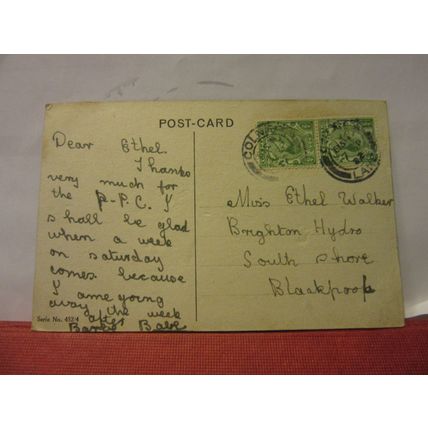 POST-CARD
Dear Ethel.
Thanks
very much for
the P.P.C. I
shall be glad
when a week
on saturday
comes because
I ame young
away the week
after
Miss Ethel Walker
Brighton Hydro
South shore
Blackpool
Serie No. 452/4
COLN
LAN